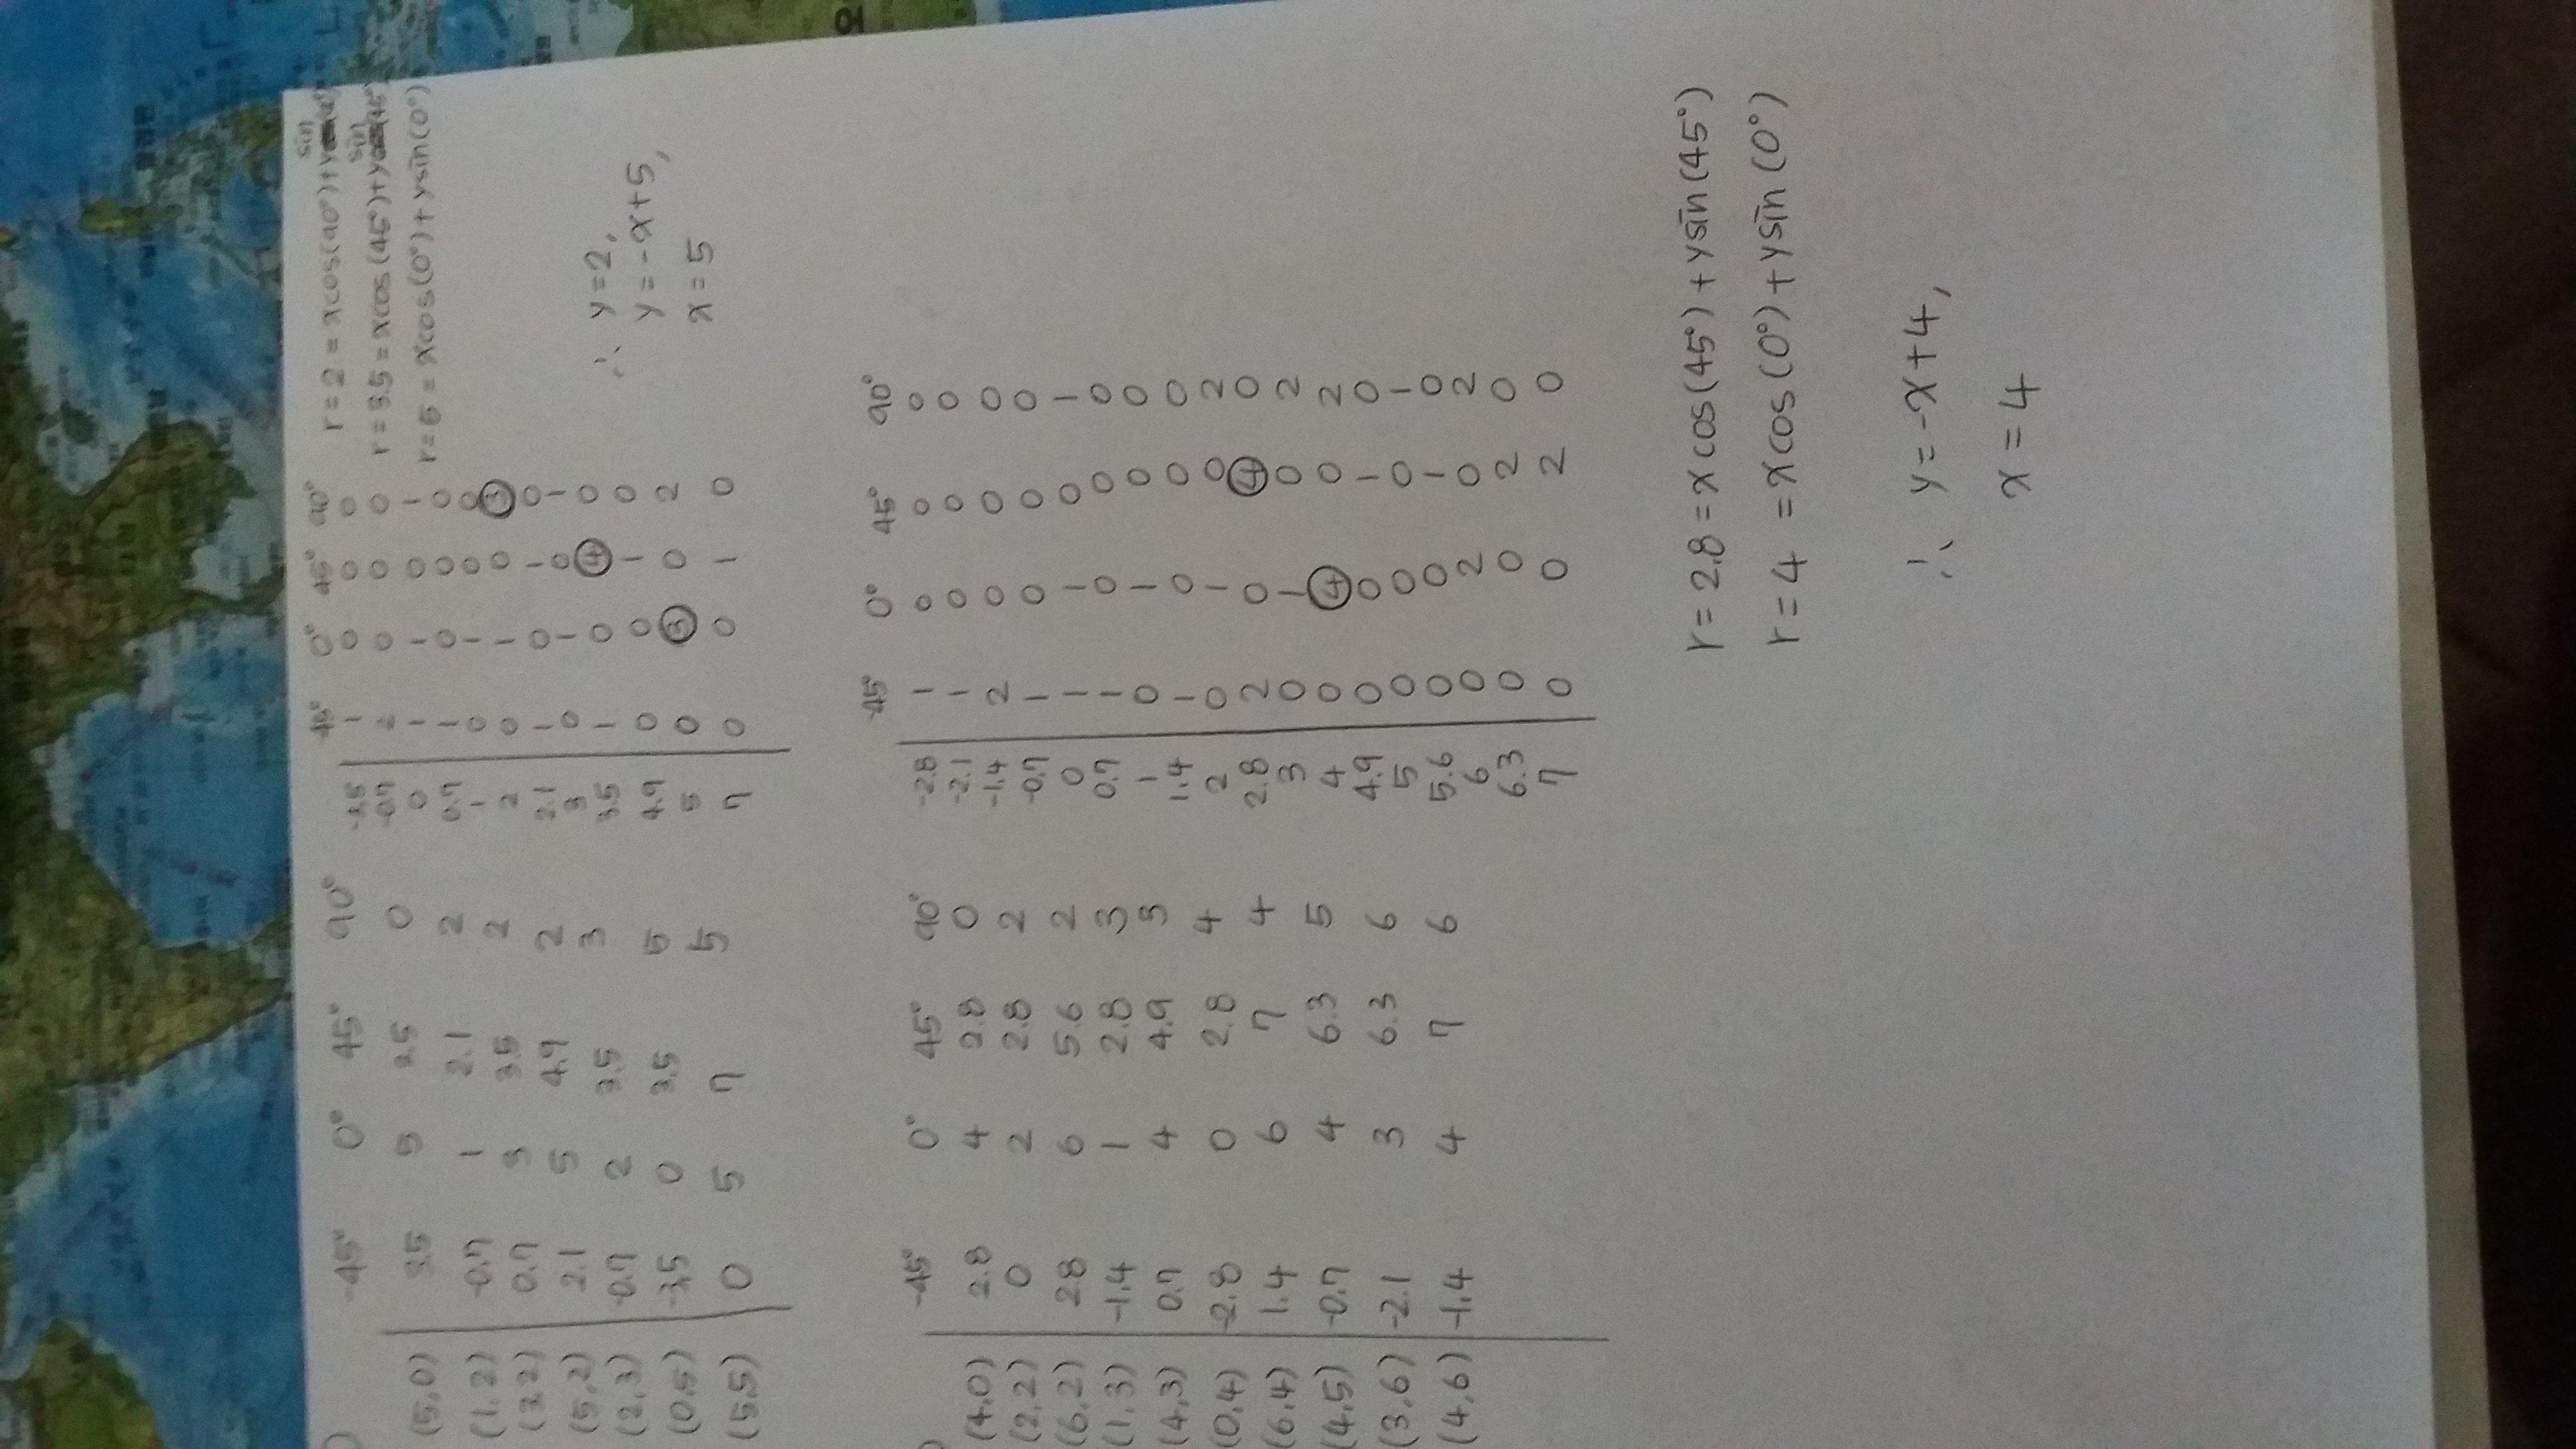 -45° 0° 45° 90°
(5,0) 3.5 5 3.5 0
(1,2) -0.7 1 2.1 2
(3,2) 0.7 3 3.5 2
(5,2) 2.1 5 4.9 2
(2,3) -0.7 2 3.5 3
(0,5) -3.5 0 3.5 5
(5,5) 0 5 7 5
-45° 0° 45° 90°
-3.5 1 0 0 0
-0.7 2 0 0 0
0 1 1 0 1
0.7 1 0 0 0
1 0 1 0 0
2 0 1 0 3
2.1 1 0 1 0
3 0 1 0 1
3.5 1 0 4 0
4.9 0 0 1 0
5 0 3 0 2
7 0 0 1 0
r = 2 = xcos(90°)+ysin
r = 3.5 = xcos(45°)+ysin(45°)
r = 5 = xcos(0°)+ysin(0°)
∴ y=2,
y=-x+5,
x=5
-45° 0° 45° 90°
(4,0) 2.8 4 2.8 0
(2,2) 0 2 2.8 2
(6,2) 2.8 6 5.6 2
(1,3) -1.4 1 2.8 3
(4,3) 0.7 4 4.9 3
(0,4) -2.8 0 2.8 4
(6,4) 1.4 6 7 4
(4,5) -0.7 4 6.3 5
(3,6) -2.1 3 6.3 6
(4,6) -1.4 4 7 6
-45° 0° 45° 90°
-2.8 1 0 0 0
-2.1 1 0 0 0
-1.4 2 0 0 0
-0.7 1 0 0 0
0 1 1 0 1
0.7 1 0 0 0
1 0 1 0 0
1.4 1 0 0 0
2 0 1 0 2
2.8 2 0 4 0
3 0 1 0 2
4 0 4 0 2
4.9 0 0 1 0
5 0 0 0 1
5.6 0 0 1 0
6 0 2 0 2
6.3 0 0 2 0
7 0 0 2 0
r = 2.8 = xcos(45°)+ysin(45°)
r = 4 = xcos(0°)+ysin(0°)
∴ y=-x+4,
x=4